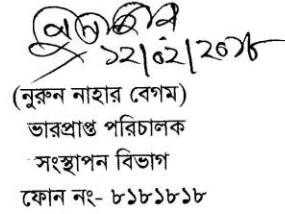 ১২/০২/২০১৮
(নুরুন নাহার বেগম)
ভারপ্রাপ্ত পরিচালক
সংস্থাপন বিভাগ
ফোন নং- ৮১৮১৮১৮